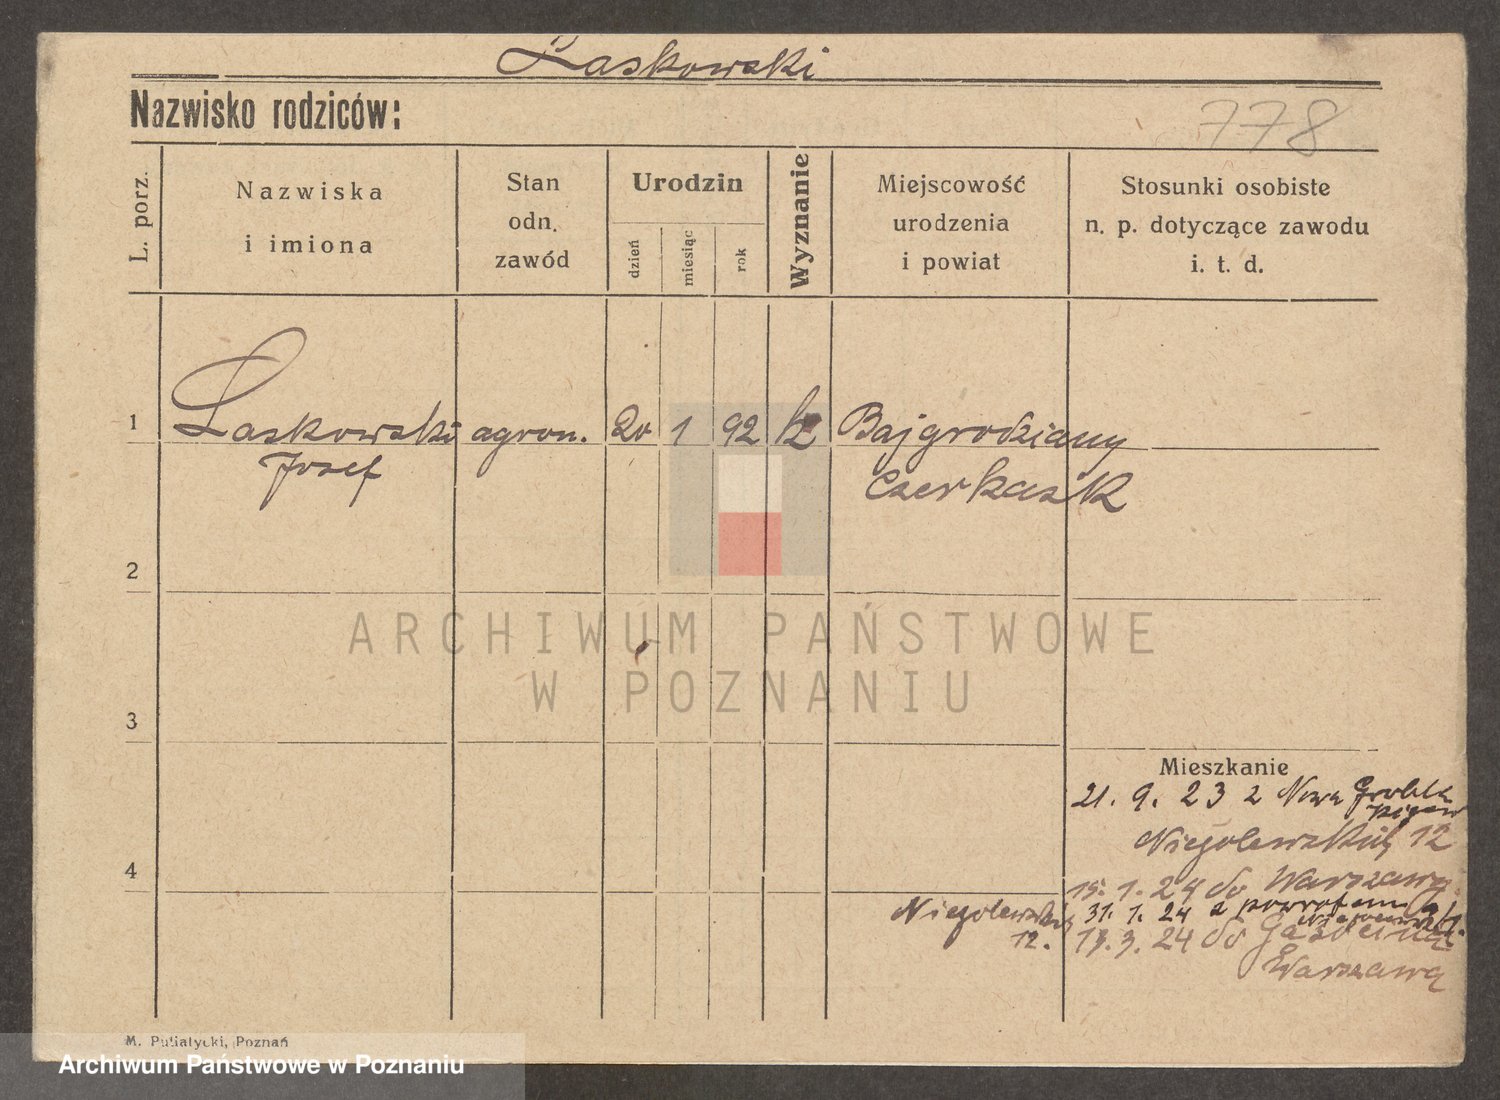 Laskowski
Nazwisko rodziców:
778
L. porz.
Nazwiska
i imiona
Stan
odn.
zawód
Urodzin
dzień
miesiąc
rok
Wyznanie
Miejscowość
urodzenia
i powiat
Stosunki osobiste
n. p. dotyczące zawodu
i. t. d.
1
Laskowski agron. 20 1 92 k Bajgrodziany
Josef
Czerkask
2
3
4
Mieszkanie
21. 9. 23 z Nowa Grobla
Niegolewskich 12
15. 1. 24 do Warszawy
Niegolewskich 31. 1. 24 z powrotem
12. 13. 3. 24 do
Warszawą
M. Putiatycki, Poznań
ARCHIWUM PAŃSTWOWE
W POZNANIU
Archiwum Państwowe w Poznaniu